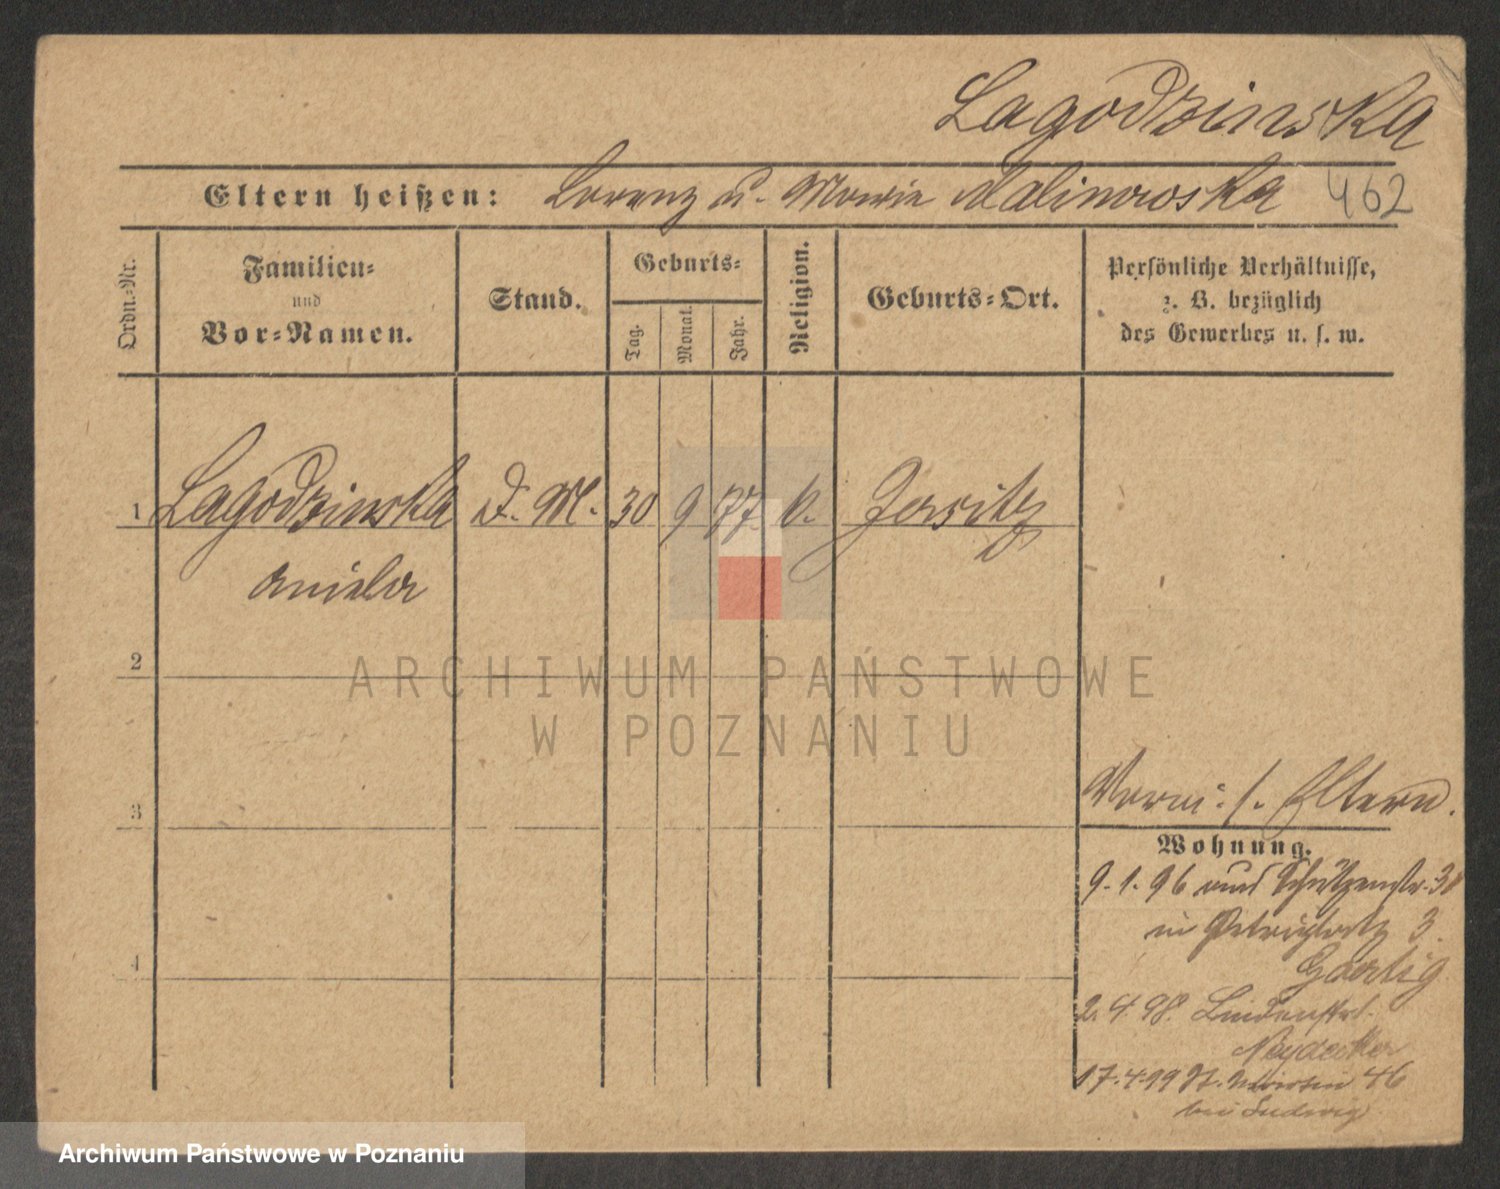 Lagodzinska
Eltern heißen: Lorenz u. Marie Malinowska 462
Ordn.-Nr.
Familien-
und
Vor-Namen.
Stand.
Geburts-
Tag.
Monat.
Jahr.
Religion.
Geburts-Ort.
Persönliche Verhältnisse,
z. B. bezüglich
des Gewerbes u. s. w.
1 Lagodzinska D. M. 30 9 77 k. Jersitz
Aniela
2
3
4
s. Eltern.
Wohnung.
9. 1. 96 Schützenstr. 31
in Petriplatz 3
Gaertig
2. 4. 98. Lindenstr.
Neydecker
17. 4. 99 St. Martin 46
bei Ludwig
ARCHIWUM PAŃSTWOWE
W POZNANIU
Archiwum Państwowe w Poznaniu